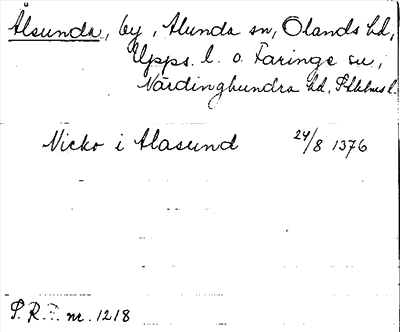 Ålsunda, by, Alunda sn, Olands hd,
Upps. l. o. Faringe sn,
Närdinghundra hd, Sthlms l.
Nicko i Alasund 24/8 1376
S.R.P. nr. 1218